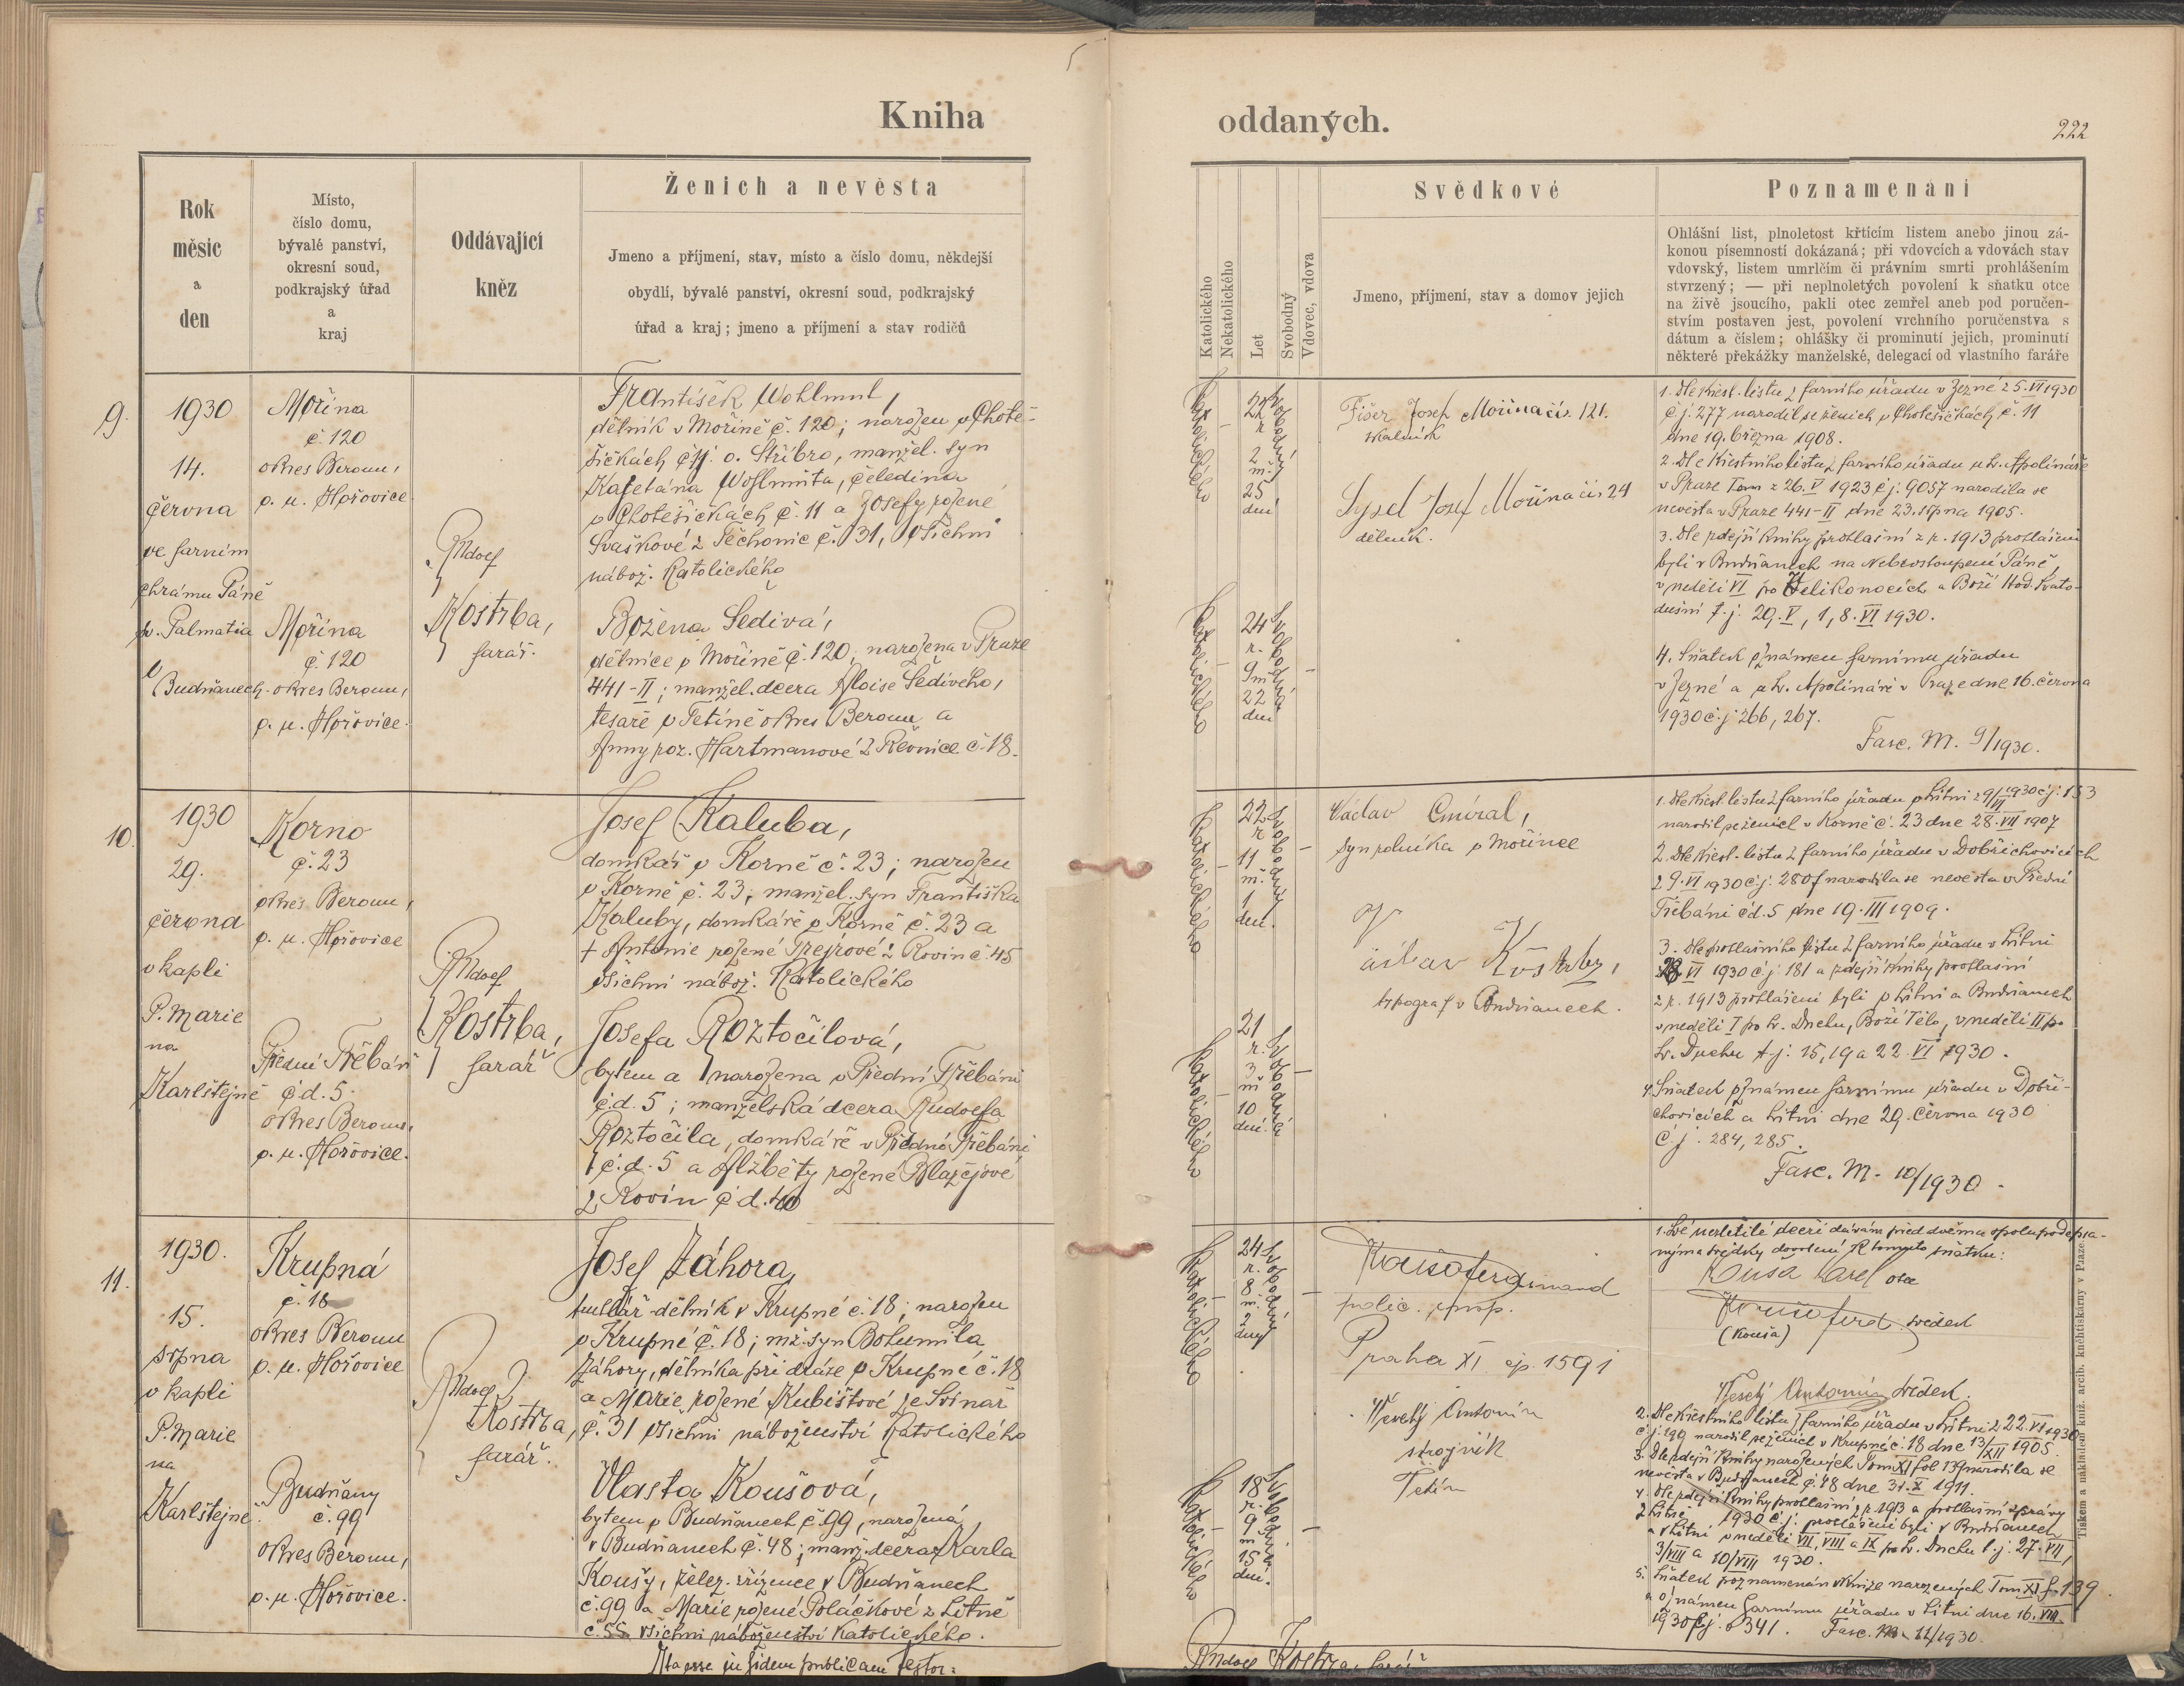 Kniha
oddaných.
222
Rok
měsíc
a
den
Místo,
číslo domu,
bývalé panství,
okresní soud,
podkrajský úřad
a
kraj
Oddávající
kněz
Ženich a nevěsta
Jmeno a příjmení, stav, místo a číslo domu, někdejší
obydlí, bývalé panství, okresní soud, podkrajský
úřad a kraj; jmeno a příjmení a stav rodičů
Katolického
Nekatolického
Let
Svobodný
Vdovec, vdova
Svědkové
Jmeno, příjmení, stav a domov jejich
Poznamenání
Ohlášní list, plnoletost křticím listem anebo jinou zá-
konou písemností dokázaná; při vdovcích a vdovách stav
vdovský, listem umrlčím či právním smrti prohlášením
stvrzený; — při neplnoletých povolení k sňatku otce
na živě jsoucího, pakli otec zemřel aneb pod poručen-
stvím postaven jest, povolení vrchního poručenstva s
dátum a číslem; ohlášky či prominutí jejich, prominutí
některé překážky manželské, delegací od vlastního faráře
9.
1930
14.
června
ve farním
chrámu Páně
sv. Palmatia
v
Budňanech
Mořina
č. 120
okres Beroun,
p. u. Hořovice
Mořina
č. 120
okres Beroun,
p. u. Hořovice.
Rudolf
Kostrba,
farář.
František Wohlmut,
dělník v Mořině č. 120; narozen v Chote-
šičkách čp. o. Stříbro, manžel. syn
Kajetána Wohlmuta, čeledína
v Chotěšičkách č. 11 a Josefy rozené
Svaškové z Těchonic č. 31, všichni
nábož. katolického
Božena Šedivá,
dělnice v Mořině č. 120; narozena v Praze
441-II; manžel. dcera Aloise Šedivého,
tesaře v Tetíně okres Beroun a
Anny roz. Hartmanové z Řevnice č. 18.
katolického
22 r
2 m.
25 dní
svobodný
katolického
24 r.
9 m
22 dní
svobodná
Fišer Josef Mořina čís. 121.
skalník
Sysel Josef Mořina čís 24
dělník.
1. Dle křest. listu z farního úřadu v Jezné z 5. VI 1930
č.j. 277 narodil se ženich v Chotesičkách č. 11
dne 19. března 1908.
2. Dle křestního listu z farního úřadu u sv. Apolináře
v Praze Tom z 26. V 1923 č.j. 9057 narodila se
nevěsta v Praze 441-II dne 23. srpna 1905.
3. Dle zdejší knihy prohlašní z r. 1913 prohlášeni
byli v Budňanech na Nebevstoupení Páně,
v neděli VI po Velikonocích a Boží Hod Svato-
dušní t. j. 29. V, 1, 8. VI 1930.
4. Sňatek oznámen farnímu úřadu
v Jezné a u sv. Apolináře v Praze dne 16. června
1930 č.j. 266, 267.
Fasc. M. 9/1930.
10.
1930
29.
června
v kapli
P. Marie
na
Karlštejně
Korno
č. 23
okres Beroun,
p. u. Hořovice
Přední Třebáň
č d. 5.
okres Beroun,
p. u. Hořovice.
Rudolf
Kostrba,
farář
Josef Kaluba,
domkář v Korně č. 23; narozen
v Korně č. 23, manžel. syn Františka
Kaluby, domkáře v Korně č. 23 a
+ Antonie rozené Trejrové z Rovin č. 45
všichni nábož. katolického
Josefa Roztočilová,
bytem a narozena v Přední Třebáni
č.d. 5; manželská dcera Rudolfa
Roztočila, domkáře v Přední Třebáni
č.d. 5 a Alžběty rozené Blažejové
z Rovin č d. 40
katolického
22 r
11 m.
1 den.
svobodný
katolického
21 r.
3 m
10 dní.
svobodná
Václav Cmíral,
syn rolníka v Mořince
Václav Kostrba,
typograf v Budňanech.
1. Dle křest. listu z farního úřadu v Litni z 9/VI 1930 č.j. 153
narodil se ženich v Korně č. 23 dne 28. VII 1907
2. Dle křest. listu z farního úřadu v Dobřichovicích
z 9. VI 1930 č.j. 280 narodila se nevěsta v Přední
Třebáni č d. 5 dne 19. III 1909.
3. Dle prohlašního listu z farního úřadu v Litni
28 VI 1930 č.j. 181 a zdejší knihy prohlašní
z r. 1913 prohlášeni byli v Litni a Budňanech
v neděli I po sv. Duchu, Boží Tělo, v neděli II po
sv. Duchu t.j. 15, 19 a 22. VI 1930.
4. Sňatek oznámen farnímu úřadu v Dobři-
chovicích a Litni dne 29. června 1930
č.j. 284, 285.
Fasc. M. 10/1930.
11.
1930.
15.
srpna
v kapli
P. Marie
na
Karlštejně.
Krupná
č. 18
okres Beroun
p. u. Hořovice
Budňany
č. 99
okres Beroun,
p. u. Hořovice.
Rudolf
Kostrba,
farář.
Josef Záhora,
dělník v Krupné č. 18; narozen
v Krupné č. 18; mž. syn Bohumila
Záhory, dělníka při dráze v Krupné č. 18
a Marie rozené Kubištové ze Svinař
č. 31 všichni náboženství katolického
Vlasta Koušová,
bytem v Budňanech č. 99, narozená
v Budňanech č. 48; manž. dcera Karla
Kouši, želez. zřízence v Budňanech
č. 99 a Marie rozené Poláčkové z Litně
č. 55 všichni náboženství katolického.
Ita esse in fidem publicam testor:
katolického
24 r.
8. m.
2 dny
svobodný
katolického
18 r.
9 m
15 dní.
svobodná
Kouša Ferdinand
polic. insp.
Praha XI čp. 1591
Veselý Antonín
strojník
Tetín
1. Své nezletilé dceři dávám před dvěma spolupodepsa-
nýma svědky dovolení k tomuto sňatku:
Kouša Karel otec
Kouša Ferd. svědek
(Kouša)
Veselý Antonín svědek.
2. Dle křestního listu z farního úřadu v Litni z 22. VI 1930
č.j. 199 narodil se ženich v Krupné č. 18 dne 13/XII 1905.
3. Dle zdejší knihy narozených Tom XI fol 139 narodila se
nevěsta v Budňanech č. 48 dne 31. X 1911.
4. Dle zdejší knihy prohlašní z r. 1913 a prohlašní zprávy
z Litně 1930 č.j. prohlášeni byli v Budňanech
a v Litni v neděli VII, VIII a IX po sv. Duchu t.j. 27. VII,
3/VIII a 10/VIII 1930.
5. Sňatek poznamenán v knize narozených Tom XI f. 139.
a oznámen farnímu úřadu v Litni dne 16. VIII
1930 č.j. 341. Fasc. M. 11/1930.
Rudolf Kostrba, farář
Tiskem a nákladem kníž. arcib. knihtiskárny v Praze.